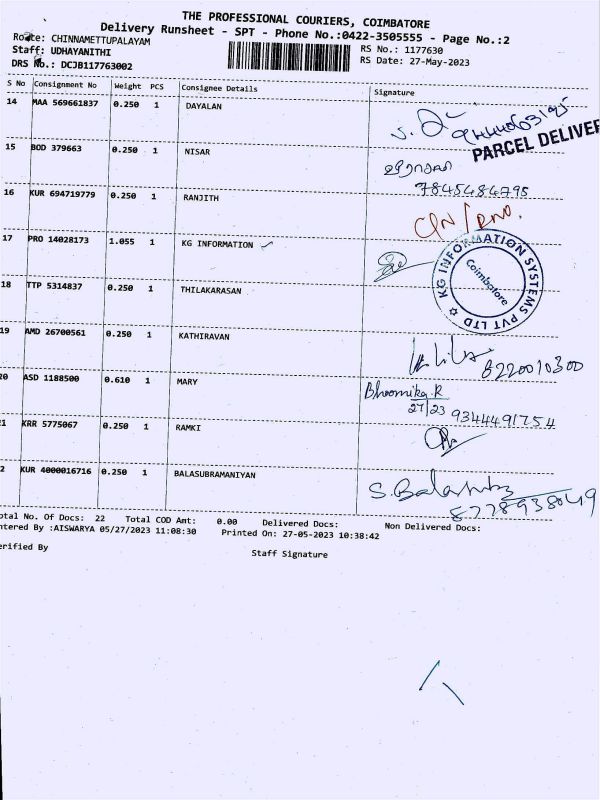 THE PROFESSIONAL COURIERS, COIMBATORE
Delivery Runsheet - SPT - Phone No.:0422-3505555 - Page No.:2
Route: CHINNAMETTUPALAYAM
RS No.: 1177630
Staff: UDHAYANITHI
RS Date: 27-May-2023
DRS No.: DCJB117763002
S No Consignment No Weight PCS Consignee Details Signature
14 MAA 569661837 0.250 1 DAYALAN
PARCEL DELIVER
15 BOD 379663 0.250 1 NISAR
7845484795
16 KUR 694719779 0.250 1 RANJITH
17 PRO 14028173 1.055 1 KG INFORMATION
KG INFORMATION SYSTEMS PVT LTD
Coimbatore
18 TTP 5314837 0.250 1 THILAKARASAN
19 AMD 26700561 0.250 1 KATHIRAVAN
8220010300
20 ASD 1188500 0.610 1 MARY Bhoomika.R
27/23 9344491754
21 KRR 5775067 0.250 1 RAMKI
2 KUR 4000016716 0.250 1 BALASUBRAMANIYAN
8778938049
otal No. Of Docs: 22 Total COD Amt: 0.00 Delivered Docs: Non Delivered Docs:
ntered By :AISWARYA 05/27/2023 11:08:30 Printed On: 27-05-2023 10:38:42
erified By
Staff Signature